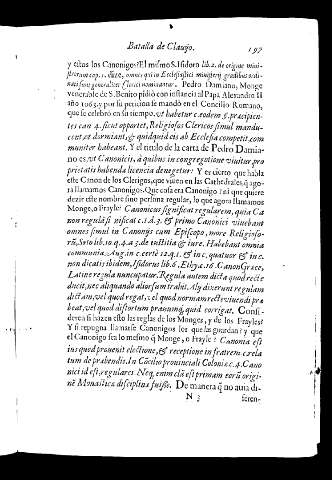 Batalla de Clauijo. 197
y estos los Canonigos? El mesmo S. Isidoro lib. 2. de origine mini-
sterorum cap. 1. dize, omnes qui in Ecclesiastici mynisterij gradibus ordi-
nati sunt generaliter Clerici nominantur. Pedro Damiano, Monge
venerable de S. Benito pidiò con instancia al Papa Alexandro II
año 1063. y por su peticion se mandò en el Concilio Romano,
que se celebrò en su tiempo, vt habetur eodem §. præcipien-
tes can 4. sicut oportet, Religiosos Clericos simul mandu-
cent, et dormiant; & quidquid eis ab Ecclesia competit com
muniter habeant. Y el titulo de la carta de Pedro Damia-
no es, vt Canonicis, à quibus in congregatione viuitur pro
prietatis habenda licencia denegetur: Y es cierto que habla
este Canon de los Clerigos, que viuen en las Cathedrales, q̃ ago-
ra llamamos Canonigos. Que cosa era Canonigo? ni que quiere
dezir este nombre sino persona reglar, lo que agora llamamos
Monge, o Frayle? Canonicus significat regularem, quia Ca
non regula significat c. 1. d. 3. & primo Canonici viuebant
omnes simul in Canonijs cum Episcopo, more Religioso-
rũ, Soto lib. 10 q. 4. a 3. de iustitia & iure. Habebant omnia
communia. Aug. in c. certè 12. q. 1. & in c. quatuor & in c.
non dicatis ibidem, Isidorus lib. 6. Ethy c. 16. Canon Græcè,
Latinè regula nuncupatur. Regula autem dicta quod recte
ducit, nec aliquando aliorsum trahit. Aly dixerunt regulam
dictam, vel quod regat, vel quod normam rectè viuendi præ
beat, vel quod distortum prauumq; quid corrigat. Consi-
derea si hazen esto las reglas de los Monges, y de los Frayles?
Y si repugna llamasse Canonigos los que las guardan? y que
el Canonigo sea lo mesmo q̃ Monge, o Frayle? Canonia est
ius quod prouenit electione, & receptione in fratrem cæla
tum de præbendis. In Cõcilio prouinciali Colonie. c. 4. Cano
nici id est, regulares. Neq; enim clũ est primam eorũ origi-
nẽ Monasticæ disciplinæ fuisse. De manera q̃ no auia di-
N 3 feren-